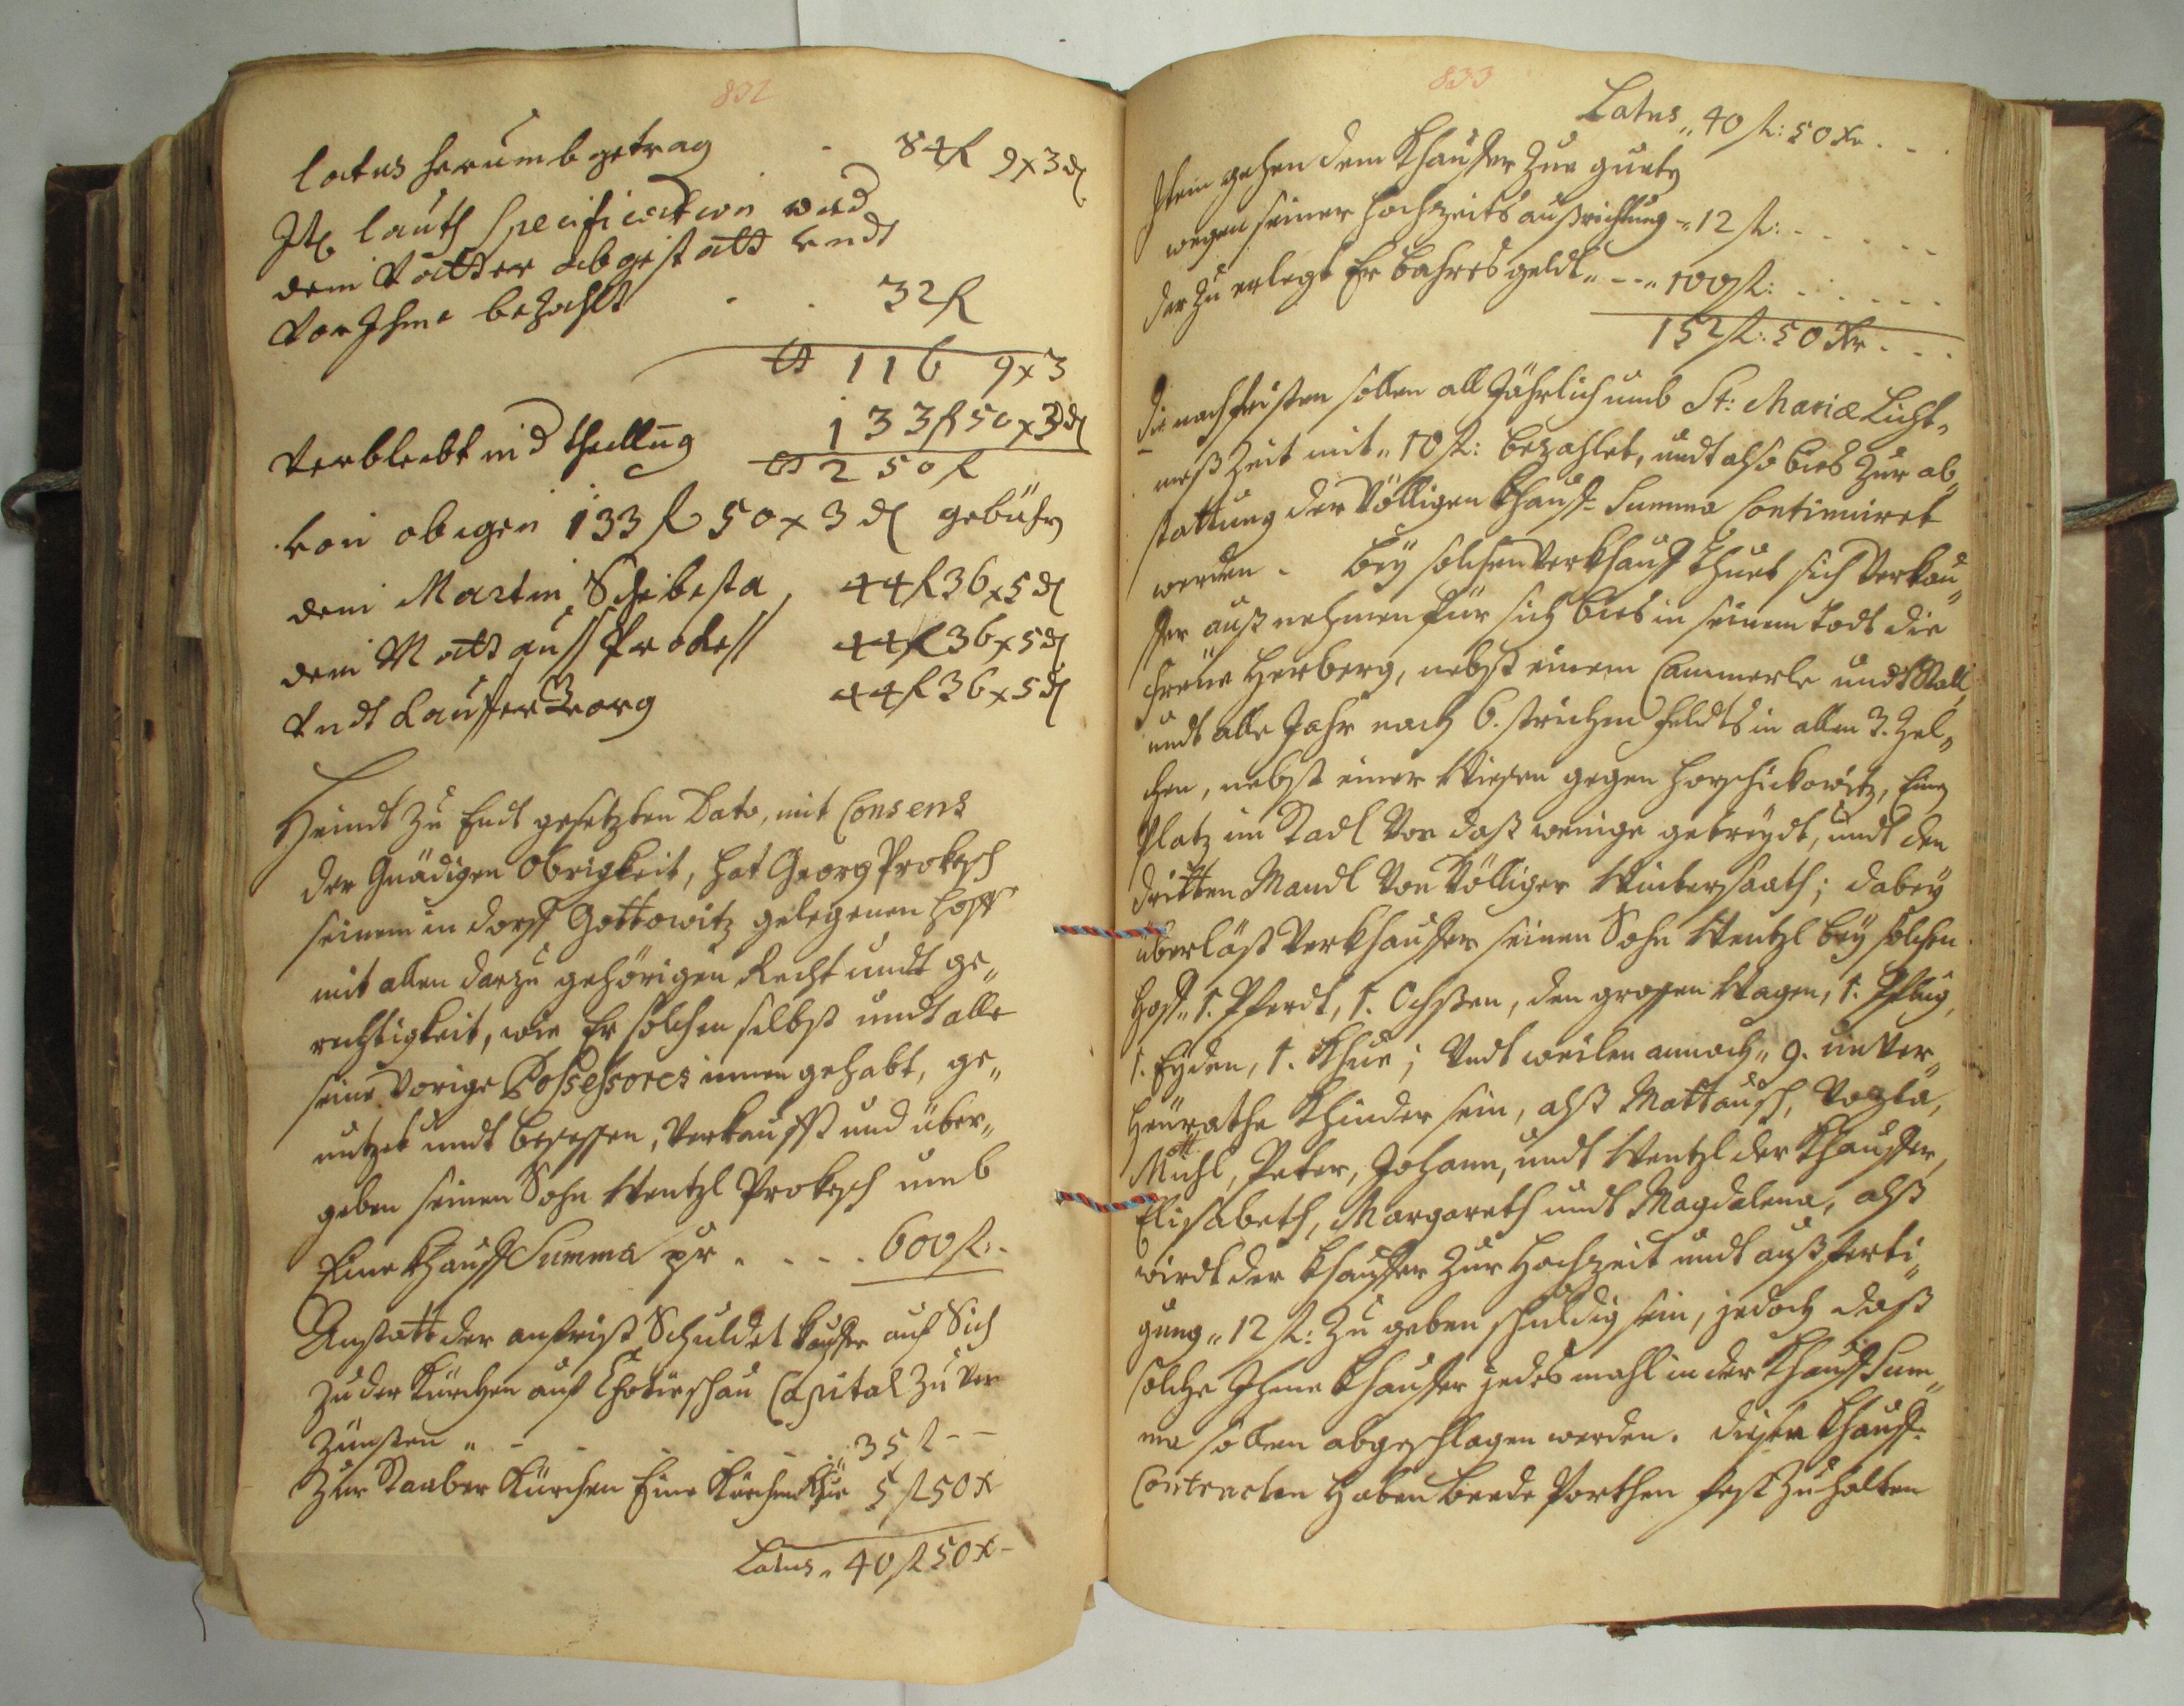 832
latus herumb getrag - 84 f 9 x 3 d
It. lauth Specification
dem Vatter abgestatt undt
vor Ihme bezahlt - - 32 f
116 9 x 3
Verbleibt in d theillung 133 f 50 x 3 d
250 f
von obigen 133 f 50 x 3 d gebühr
dem Martin Schebesta 44 f 36 x 5 d
dem Mattauss Prokess 44 f 36 x 5 d
Undt Kauffer Georg 44 f 36 x 5 d
Heundt zu Endt gesetzten Dato, mit Consens
der Gnädigen Obrigkeit, hat Georg Prokesch
seinem in dorff Gottowitz gelegenen Hoff
mit allen darzu gehörigen Recht undt ge„
rechtigkeit, wie Er solchen selbst undt alle
seine Vorige Possessores innen gehabt, ge„
nutzet undt besessen, Verkaufft und über„
geben seinen Sohn Wentzl Prokesch umb
Eine Khauff Summa pr . - - . 600 fl: .
Anstatt der anfrist Schuldet Kauffer auf Sich
zu der Kürchen auf Chotieschau Capital zu ver
Zünsten „ - - - 35 fl - -
Zur Staaber Kürchen Eine Kürchen Khue 5 fl 50 x
Latus „ 40 fl 50 x -
833
Latus „ 40 fl: 50 Xr . - .
Item gehen dem Khauffer zue guetz
wegen seiner hochzeits außrichtung - 12 fl: - - - - -
der zu erlegt Er bahres geldt „ - - „ 100 fl: . . - - -
152 fl: 50 Xr . - .
Die nachfristen sollen all Jährlich umb St: Mariæ Licht„
meß Zeit mit „ 10 fl: bezahlet, undt also bies zur ab„
stattung der Völligen Khauff Summa Continuiret
werden . Bey solchen Verkhauff thuet sich Verkau„
ffer auß nehmen für sich bies in seinem todt die
freue Herberg, nebst einem Cammerle undt Stall,
undt alle Jahr nach 6. strichen feldts in allen 3. Zel„
chen, nebst einer Wiesen gegen Horschickowitz, Einen
Platz im Stadl Vor daß wenige getreydt, undt den
dritten Mandl Von Völliger Wintersaath; dabey
überläst Verkhauffer seinen Sohn Wentzl bey solchen
Hoff „ 1. Pferdt, 1. Ochssen, den grossen Wagen, 1. Pflug,
1. Eyden, 1. Khue; Undt weilen annoch „ 9. unver„
Heurathe Khinder sein, alß Mattausch, Vogta,
Michl, Peter, Johann, undt Wentzl der Khauffer,
Elisabeth, Margareth undt Magdalena, alß
wirdt der Khauffer zur Hochzeit undt außferti„
gung „ 12 fl: zu geben schuldig sein, jedoch daß
solche Ihme Khauffer jedes mahl in der Khauff Sum„
ma sollen abgeschlagen werden. diesen Khauff
Contracten Haben beede Parthen fest zu halten